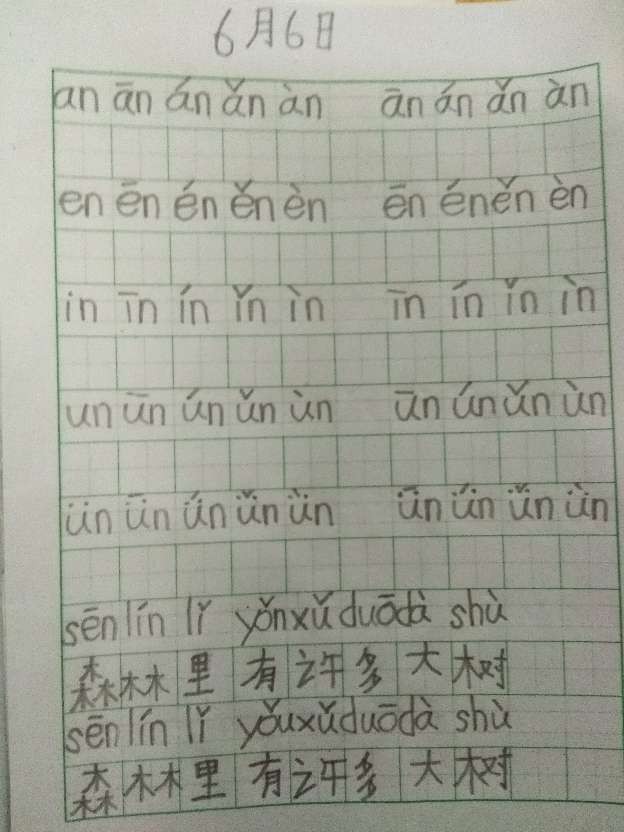 6月6日
an ān án ǎn àn ān án ǎn àn
en ēn én ěn èn ēn én ěn èn
in īn ín ǐn ìn īn ín ǐn ìn
un ūn ún ǔn ùn ūn ún ǔn ùn
ün ǖn ǘn ǚn ǜn ǖn ǘn ǚn ǜn
sēn lín lǐ yǒn xǔ duō dà shù
森林里有许多大树
sēn lín lǐ yǒu xǔ duō dà shù
森林里有许多大树